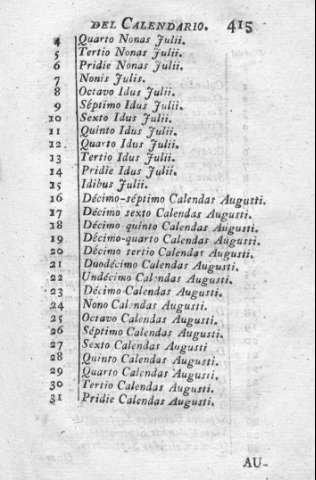 DEL CALENDARIO. 415
4 Quarto Nonas Julii.
5 Tertio Nonas Julii.
6 Pridie Nonas Julii.
7 Nonis Julis.
8 Octavo Idus Julii.
9 Séptimo Idus Julii.
10 Sexto Idus Julii.
11 Quinto Idus Julii.
12 Quarto Idus Julii.
13 Tertio Idus Julii.
14 Pridie Idus Julii.
15 Idibus Julii.
16 Décimo-séptimo Calendas Augusti.
17 Décimo sexto Calendas Augusti.
18 Décimo quinto Calendas Augusti.
19 Décimo-quarto Calendas Augusti.
20 Décimo tertio Calendas Augusti.
21 Duodécimo Calendas Augusti.
22 Undécimo Calendas Augusti.
23 Décimo Calendas Augusti.
24 Nono Calendas Augusti.
25 Octavo Calendas Augusti.
26 Séptimo Calendas Augusti.
27 Sexto Calendas Augusti
28 Quinto Calendas Augusti.
29 Quarto Calendas Augusti.
30 Tertio Calendas Augusti.
31 Pridie Calendas Augusti.
AU-